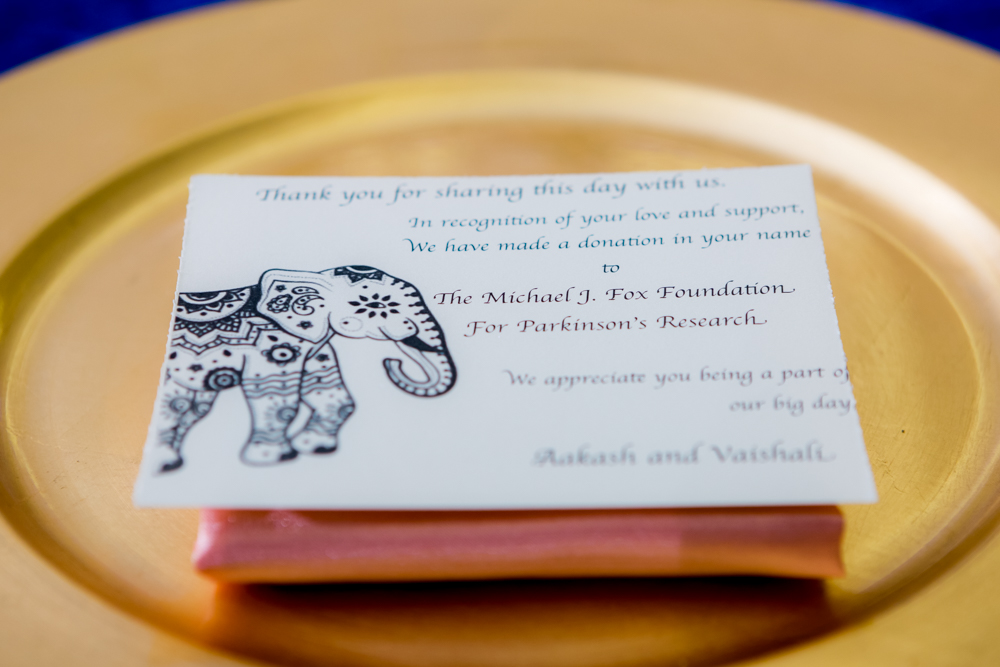 Thank you for sharing this day with us.
In recognition of your love and support,
We have made a donation in your name
to
The Michael J. Fox Foundation
For Parkinson's Research
We appreciate you being a part of
our big day.
Aakash and Vaishali